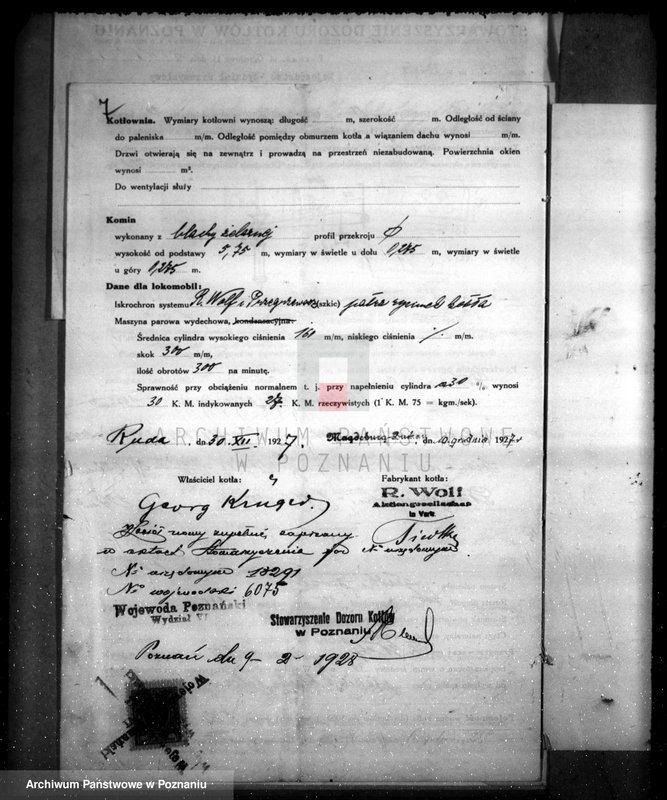 Kotłownia. Wymiary kotłowni wynoszą: długość m, szerokość m. Odległość od ściany
do paleniska m/m. Odległość pomiędzy obmurzem kotła a wiązaniem dachu wynosi m/m.
Drzwi otwierają się na zewnątrz i prowadzą na przestrzeń niezabudowaną. Powierzchnia okien
wynosi m².
Do wentylacji służy
Komin
wykonany z blachy żelaznej profil przekroju
wysokość od podstawy 5,75 m, wymiary w świetle u dołu 0,275 m, wymiary w świetle
u góry 0,275 m.
Dane dla lokomobil:
Iskrochron systemu R. Wolf (szkic) patrz rysunek kotła
Maszyna parowa wydechowa, kondensacyjna:
Średnica cylindra wysokiego ciśnienia 160 m/m, niskiego ciśnienia m/m.
skok 300 m/m,
ilość obrotów 300 na minutę.
Sprawność przy obciążeniu normalnem t. j. przy napełnieniu cylindra 30 % wynosi
30 K. M. indykowanych 27 K. M. rzeczywistych (1 K. M. 75 = kgm./sek).
Ruda, dn 30. XII. 1927. Magdeburg-Buckau, dn. 10 grudnia 1927 r
ARCHIWUM PAŃSTWOWE
W POZNANIU
Właściciel kotła: Fabrykant kotła:
Georg Kruger. R. Wolf
Aktiengesellschaft
Kocioł nowy zupełnie, zapisany
w aktach Stowarzyszenia pod № urzędowym
№ urzędowym 18291
№ wojewódzki 6075
Wojewoda Poznański
Wydział VI
Stowarzyszenie Dozoru Kotłów
w Poznaniu
Poznań dn 9 - 2 - 1928
Archiwum Państwowe w Poznaniu